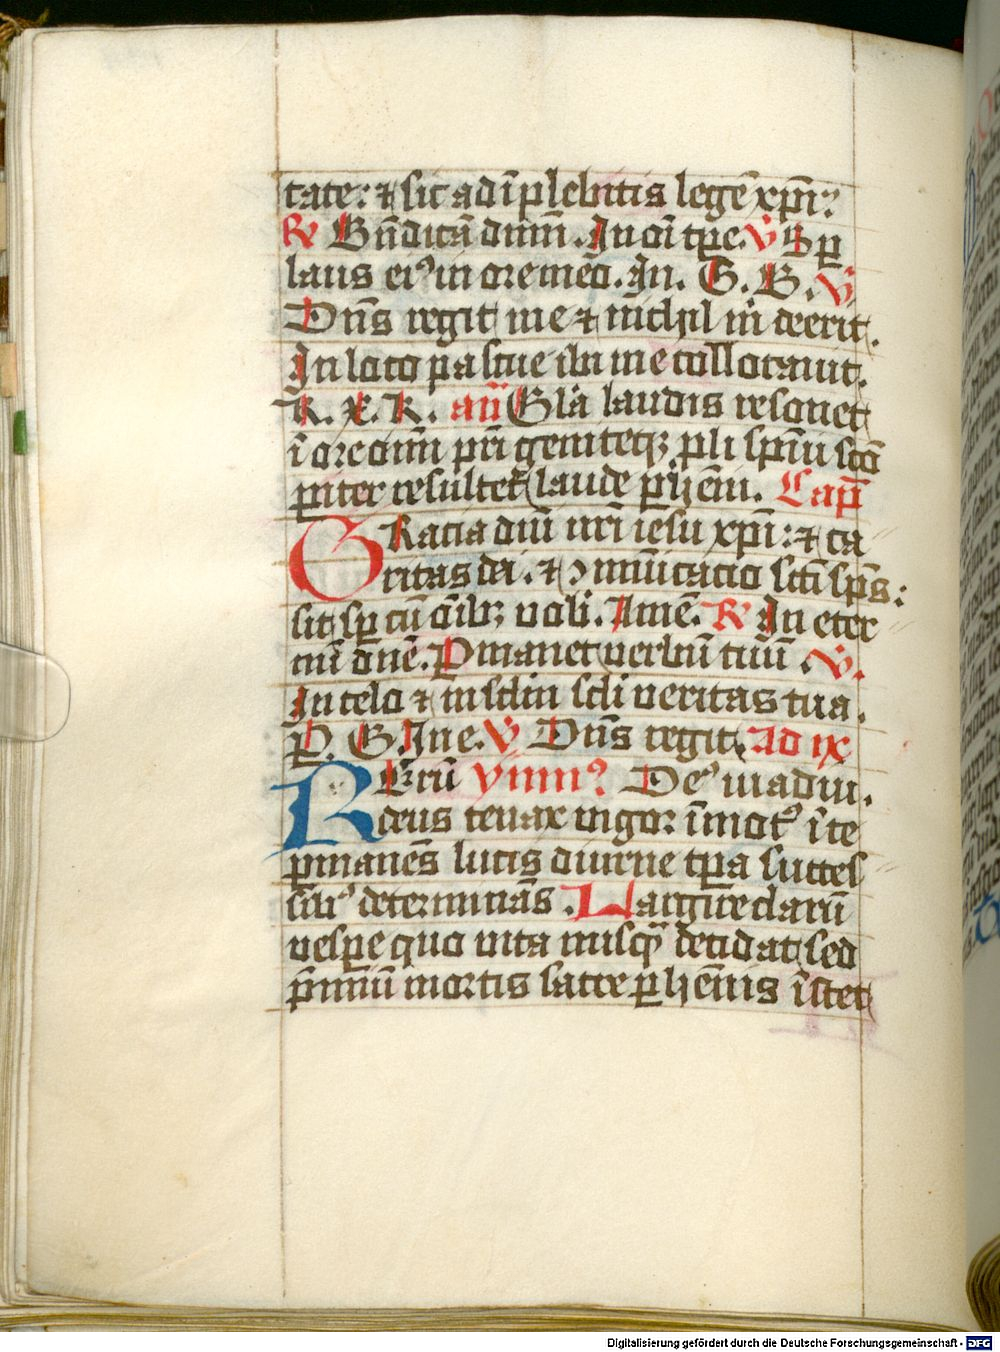 tate: ⁊ sic adīplebitis legē xp̄i:
R̷ Bn̄dicā dn̄m. In oī tp̄e. V̷ Sꝑ
laus eiꝰ in ore meo. In. G. B. V̷
Dn̄s regit me ⁊ nichil m̄ deerit.
In loco pascue ibi me collocauit.
K. X. K. an̄ Glā laudis resonet
ī ore om̄i pr̄i geniteqꝫ ꝓli spūi scō
pariter resultet laude ꝑhēni. Capl̄
GRacia dn̄i nr̄i iesu xp̄i: ⁊ ca
ritas dei. ⁊ ꝯmūicacio scī sp̄s:
sit sꝑ cū oībꝫ vobi. Amē. R̷ In eter
nū dn̄e. Pmanet verbū tuū. V̷.
In celo ⁊ in sclm scli veritas tua.
P. G. In e. V̷ Dn̄s regit. Ad ix
RErū ymnꝰ Deꝰ in adiu.
deus tenax vigor īmotꝰ ī te
ꝑmanēs lucis diurne tp̄a succes
sibꝰ determināns. Largire clarū
vespe quo vita nusqȝ decidat sed
p̄miū mortis sacre ꝑhēnis īstet
Digitalisierung gefördert durch die Deutsche Forschungsgemeinschaft - DFG